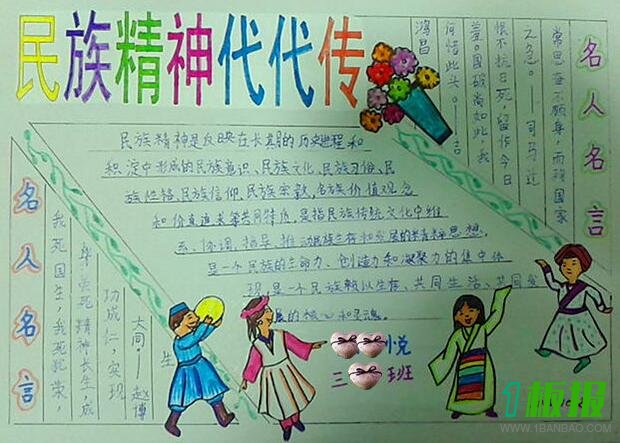 民族精神代代传
名人名言
常思奋不顾身，而殉国家
之急。——司马迁
恨不抗日死，留作今日
羞。国破尚如此，我
何惜此头。——吉
鸿昌
民族精神是反映在长期的历史进程和
积淀中形成的民族意识、民族文化、民族习俗、民
族性格、民族信仰、民族宗教，民族价值观念
和价值追求等共同特质，是指民族传统文化中维
系、协调、指导、推动民族生存和发展的精粹思想，
是一个民族的生命力、创造力和凝聚力的集中体
现，是一个民族赖以生存、共同生活、共同发
展的核心和灵魂。
名人名言
我死国生，我死犹荣，
身虽死精神长生，成
功成仁，实现
大同。——赵博
生
小悦
三
班
1板报
WWW.1BANBAO.COM